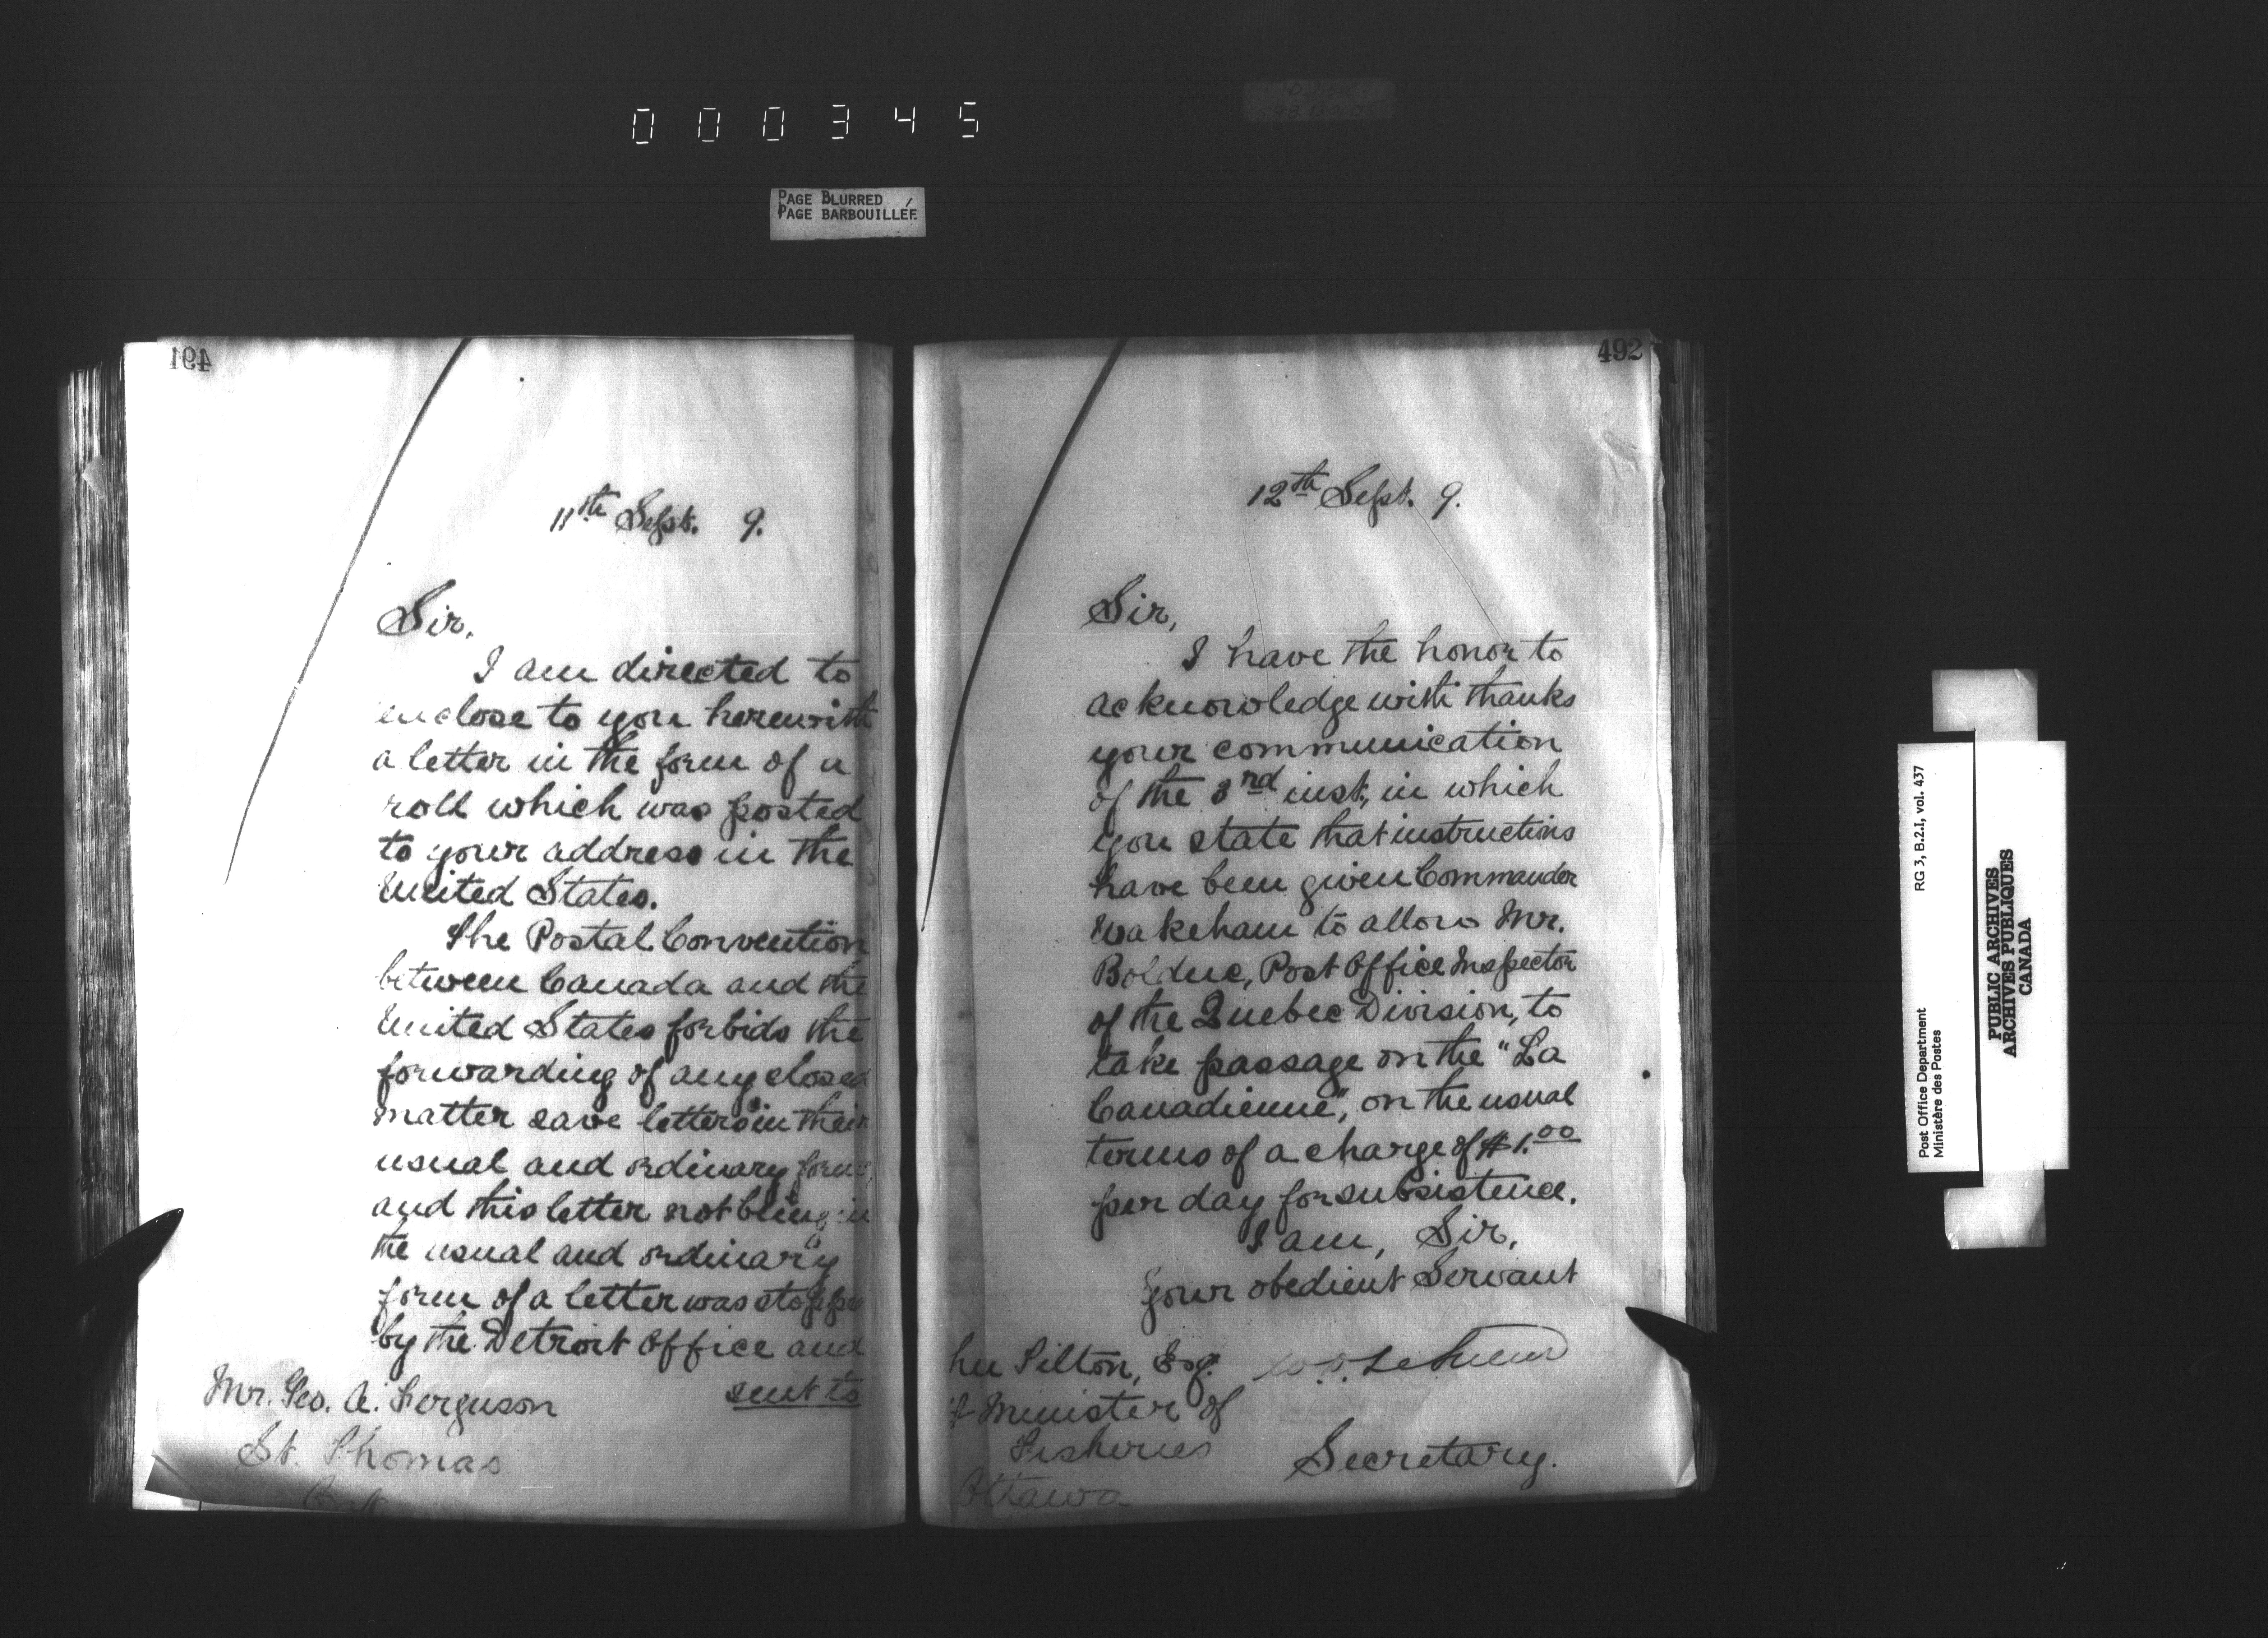 000345
PAGE BLURRED
PAGE BARBOUILLÉE
491
11th Sept. 9.
Sir,
I am directed to
enclose to you herewith
a letter in the form of a
roll which was posted
to your address in the
United States.
The Postal Convention
between Canada and the
United States forbids the
forwarding of any closed
matter save letters in their
usual and ordinary form,
and this letter not being in
the usual and ordinary
form of a letter was stopped
by the Detroit Office and
sent to
Mr. Geo. A. Ferguson
St. Thomas
492
12th Sept. 9.
Sir,
I have the honor to
acknowledge with thanks
your communication
of the 3rd inst., in which
you state that instructions
have been given Commander
Wakeham to allow Mr.
Bolduc, Post Office Inspector
of the Quebec Division, to
take passage on the "La
Canadienne", on the usual
terms of a charge of $1.00
per day for subsistence.
I am, Sir,
Your obedient Servant
Secretary.
Tilton, Esq.
Minister of
Fisheries
Ottawa
Post Office Department
Ministère des Postes
RG 3, B.2.I, vol. 437
PUBLIC ARCHIVES
ARCHIVES PUBLIQUES
CANADA